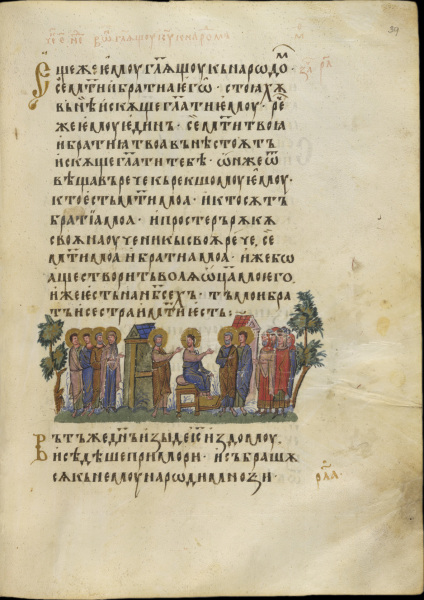 Еще же емоу гл҃ѧщоу къ нарѡдѡⷨ
се мт҃и и братиа егѡ. стоꙗхѫ
вънѣ искѫще гл҃ати емоу. ре
же емоу единъ. се мт҃и твоа
и братїа твоа вънѣ стоѧтъ
искѫще гл҃ати тебѣ. ѡн же ѿ
вѣщавъ рече къ рекшомоу емоу.
кто естъ мт҃и моа. и кто сѫтъ
братїа моа. и простеръ рѫкѫ
своѫ на оученикы своѫ рече, се
мт҃и моа и братиа моа. иже бѡ
аще творитъ волѫ ѡц҃а моего,
иже естъ на нб҃сехъ. тъ мои бра
тъ и сестра и мт҃и естъ:
Въ тъ же дн҃ъ изыде іс҃ из домоу,
и сѣдѣше при мори. и събрашѫ
сѧ къ немоу нарѡди мнѡзи.
рл҃а.